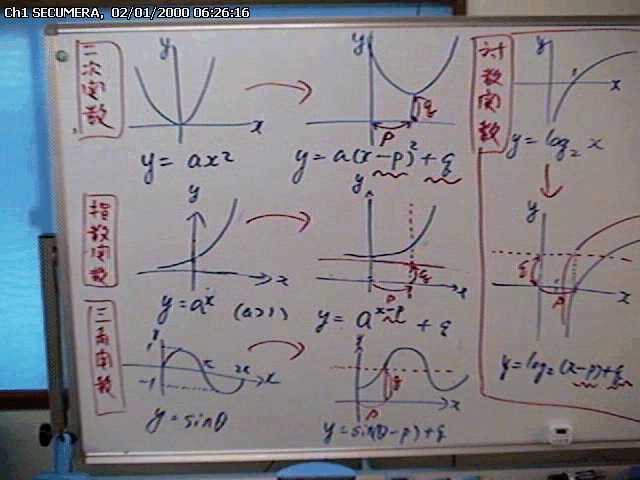 Ch1 SECUMERA, 02/01/2000 06:26:16
二次関数
y
x
y = ax2
y
p
q
y = a(x-p)² + q
指数関数
y
x
y = aˣ (a>1)
y
x
p
q
y = aˣ⁻ᵖ + q
三角関数
y
1
-1
π
2π
x
y = sinθ
y
x
p
q
y = sin(θ-p)+q
対数関数
y
1
x
y = log₂ x
y
x
p
q
y = log₂ (x-p)+q